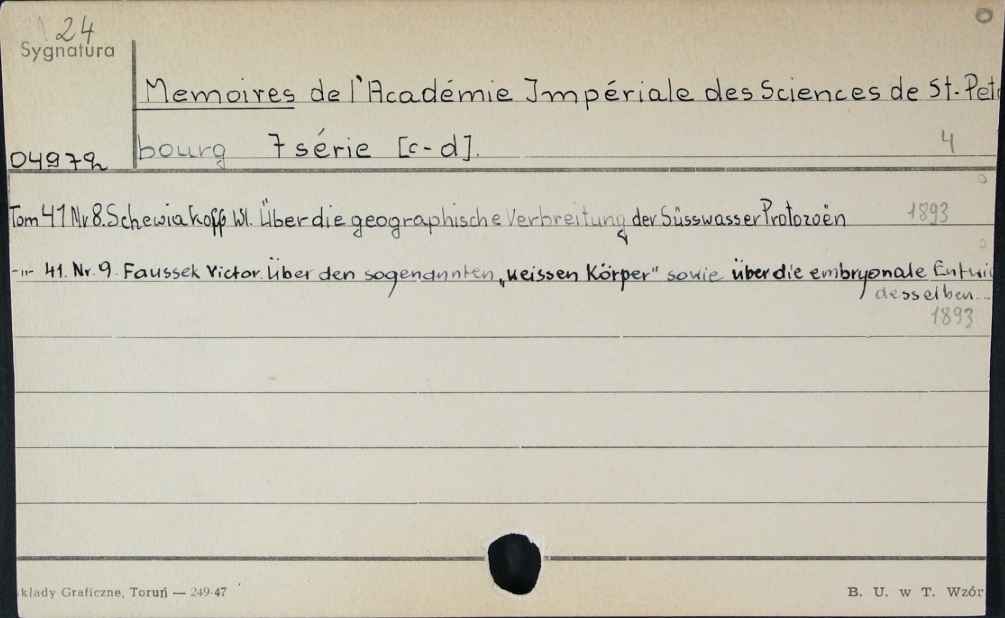 24
Sygnatura
Memoires de l'Académie Impériale des Sciences de St.-Pet
bourg 7 série [c-d].
4
04972
Tom 41 Nr 8. Schewiakoff Wl. Über die geographische Verbreitung der Süsswasser Protozoën 1893
-"- 41. Nr. 9. Faussek Victor. Über den sogenannten „weissen Körper" sowie über die embryonale Entwic
desselben...
1893
kłady Graficzne, Toruń — 249-47
B. U. w T. Wzór